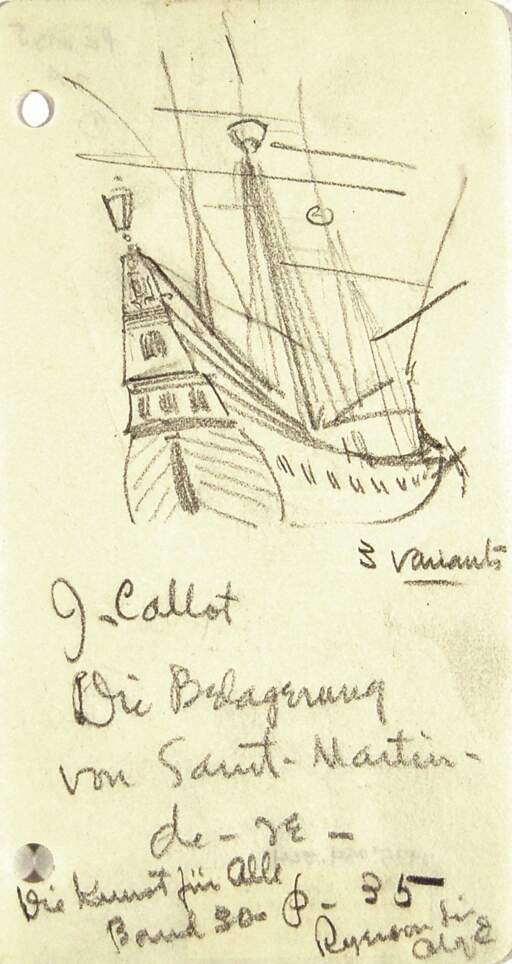 3 variants
J. Callot
Die Belagerung
von Saint-Martin-
de-re-
Die Kunst für Alle
Band 30 p-35
Ryerson